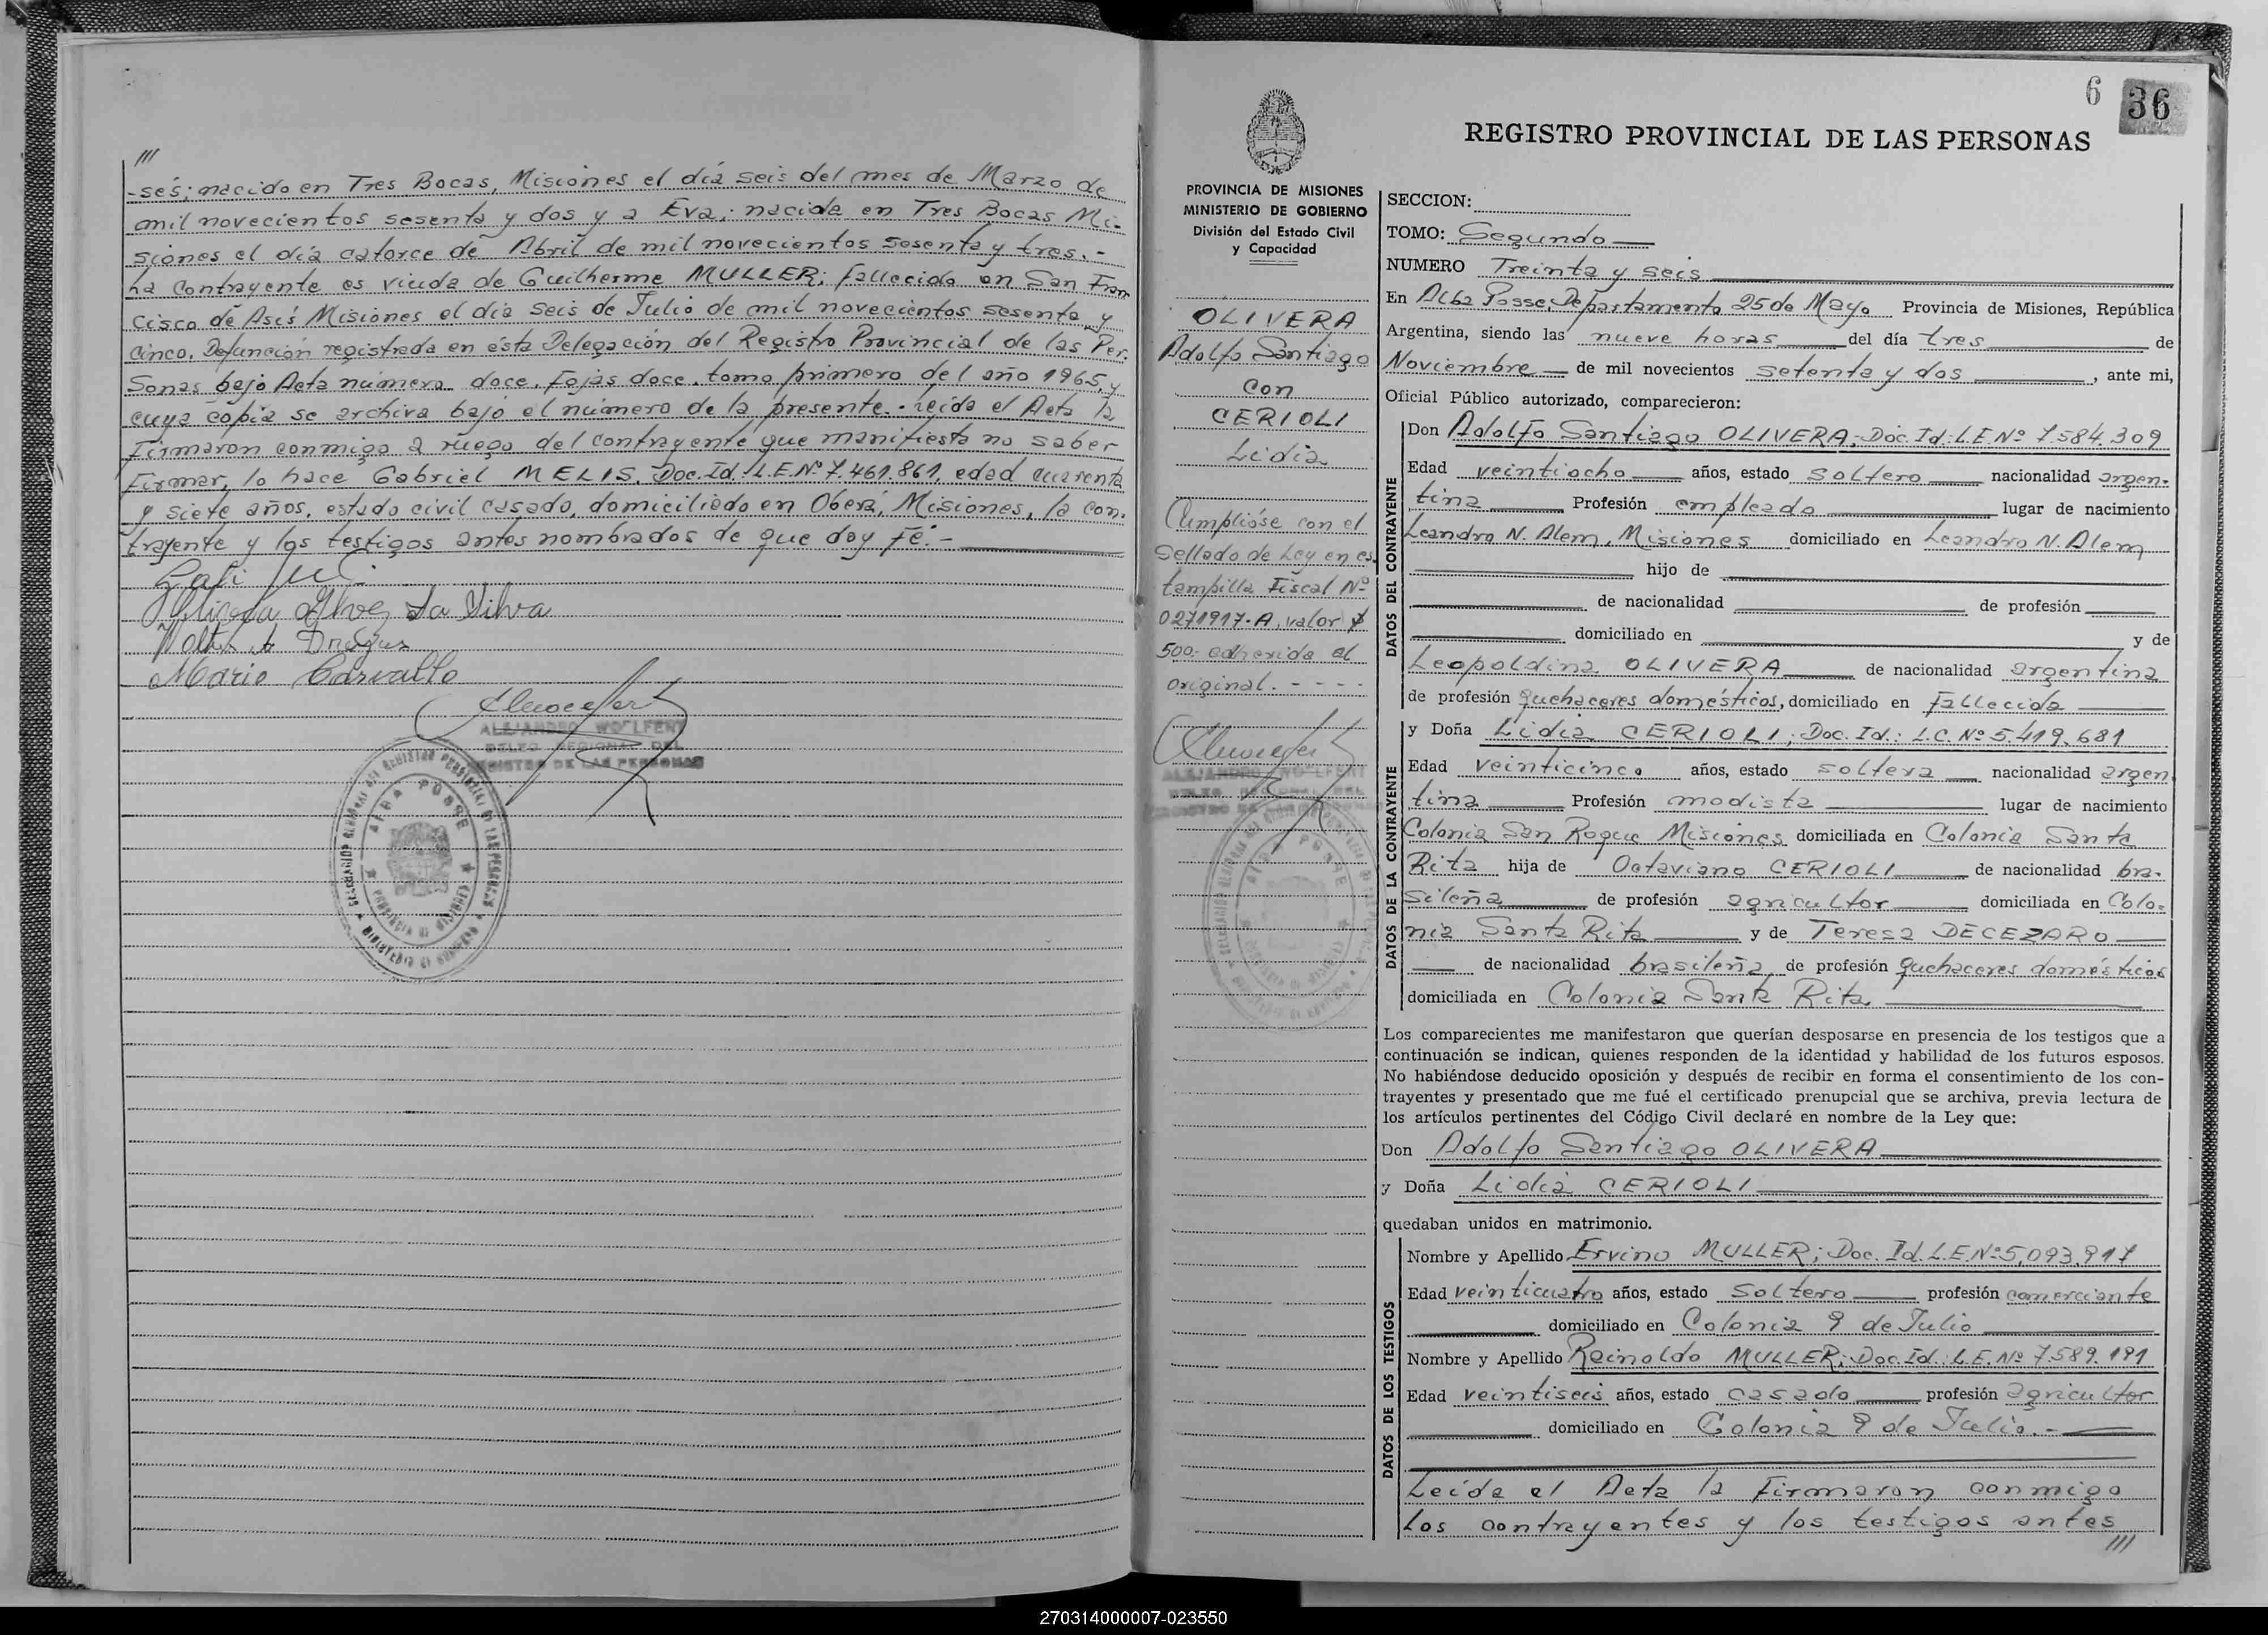 ///
-sés; nacido en Tres Bocas, Misiones el día seis del mes de Marzo de
mil novecientos sesenta y dos y a Eva; nacida en Tres Bocas Mi-
siones el día catorce de Abril de mil novecientos sesenta y tres.-
La contrayente es viuda de Guilherme MULLER; fallecido en San Fran
cisco de Asís Misiones el día seis de Julio de mil novecientos sesenta y
cinco. Defunción registrada en ésta Delegación del Registro Provincial de las Per-
sonas bajo Acta número doce, Fojas doce, tomo primero del año 1965, y
cuya copia se archiva bajo el número de la presente.- Leída el Acta la
firmaron conmigo a ruego del contrayente que manifiesta no saber
firmar, lo hace Gabriel MELIS, Doc. Id. L.E.Nº 7.461.861, edad cuarenta
y siete años, estado civil casado, domiciliado en Oberá, Misiones, la con-
trayente y los testigos antes nombrados de que doy Fé.-
Alvez Da Silva
Mario Carvallo
ALEJANDRO WOLFENT
DELEG REGIONAL DEL
REGISTRO DE LAS PERSONAS
ALBA POSSE
PROVINCIA DE MISIONES
6
36
REGISTRO PROVINCIAL DE LAS PERSONAS
PROVINCIA DE MISIONES
MINISTERIO DE GOBIERNO
División del Estado Civil
y Capacidad
OLIVERA
Adolfo Santiago
con
CERIOLI
Lidia
Cumplióse con el
Sellado de Ley en es-
tampilla Fiscal Nº
0271917-A, valor $
500.- adherida al
original. - - - -
ALEJANDRO WOLFENT
DELEG REGIONAL DEL
REGISTRO DE LAS PERSONAS
SECCION:
TOMO: Segundo
NUMERO Treinta y seis
En Alba Posse, Departamento 25 de Mayo Provincia de Misiones, República
Argentina, siendo las nueve horas del día tres de
Noviembre de mil novecientos setenta y dos, ante mi,
Oficial Público autorizado, comparecieron:
DATOS DEL CONTRAYENTE
Don Adolfo Santiago OLIVERA; Doc. Id: L.E Nº 7.584.309
Edad veintiocho años, estado soltero nacionalidad argen-
tina Profesión empleado lugar de nacimiento
Leandro N. Alem, Misiones domiciliado en Leandro N. Alem
hijo de
de nacionalidad de profesión
domiciliado en y de
Leopoldina OLIVERA de nacionalidad argentina
de profesión quehaceres domésticos, domiciliado en fallecida
DATOS DE LA CONTRAYENTE
y Doña Lidia CERIOLI; Doc. Id.: L.C. Nº 5.419.681
Edad veinticinco años, estado soltera nacionalidad argen
tina Profesión modista lugar de nacimiento
Colonia San Roque Misiones domiciliada en Colonia Santa
Rita hija de Octaviano CERIOLI de nacionalidad bra-
sileña de profesión agricultor domiciliada en Colo-
nia Santa Rita y de Teresa DECEZARO
de nacionalidad brasileña de profesión quehaceres domésticos
domiciliada en Colonia Santa Rita
Los comparecientes me manifestaron que querían desposarse en presencia de los testigos que a
continuación se indican, quienes responden de la identidad y habilidad de los futuros esposos.
No habiéndose deducido oposición y después de recibir en forma el consentimiento de los con-
trayentes y presentado que me fué el certificado prenupcial que se archiva, previa lectura de
los artículos pertinentes del Código Civil declaré en nombre de la Ley que:
Don Adolfo Santiago OLIVERA
y Doña Lidia CERIOLI
quedaban unidos en matrimonio.
DATOS DE LOS TESTIGOS
Nombre y Apellido Ervino MULLER; Doc. Id. L.E.Nº 5.093.917
Edad veinticuatro años, estado soltero profesión comerciante
domiciliado en Colonia 9 de Julio
Nombre y Apellido Reinoldo MULLER; Doc. Id.: L.E. Nº 7.589.191
Edad veintiseis años, estado casado profesión agricultor
domiciliado en Colonia 9 de Julio.-
Leída el Acta la firmaron conmigo
los contrayentes y los testigos antes
///
270314000007-023550